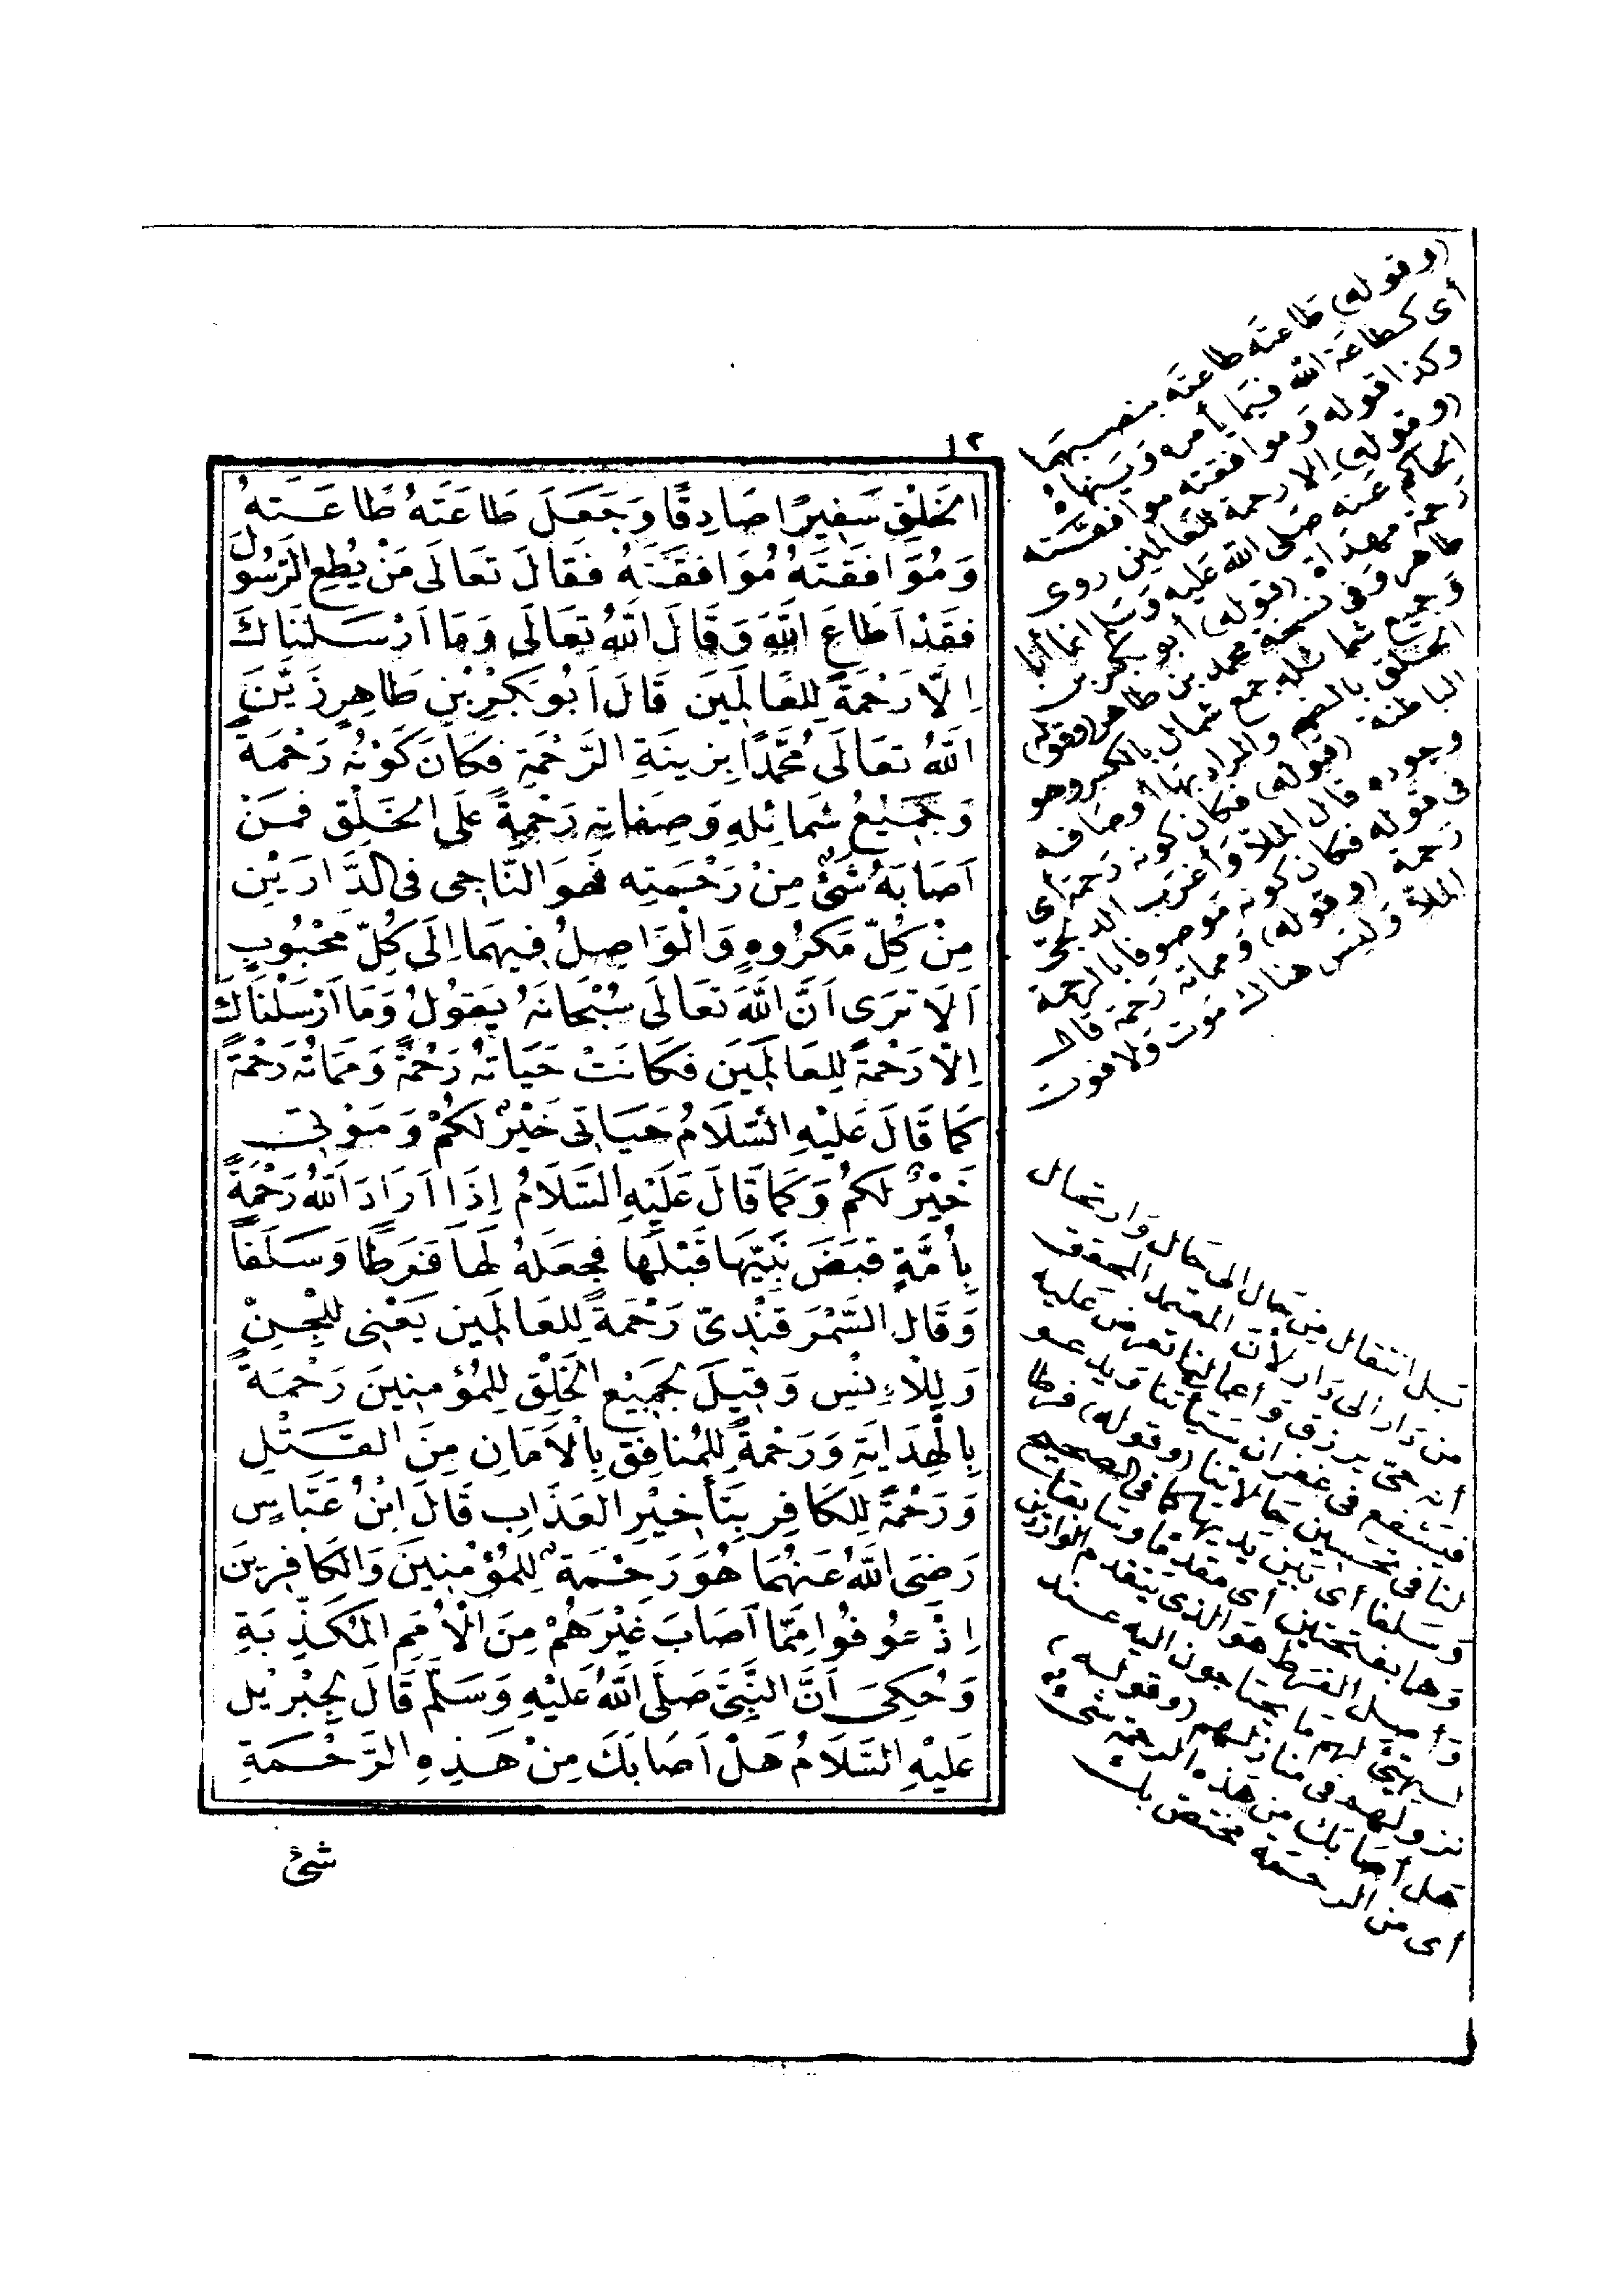 ١٢
الْخَلْقِ سَفِيرًا صَادِقًا وَجَعَلَ طَاعَتَهُ طَاعَتَهُ
وَمُوَافَقَتَهُ مُوَافَقَتَهُ فَقَالَ تَعَالَى مَنْ يُطِعِ الرَّسُولَ
فَقَدْ اَطَاعَ اللَّهَ وَقَالَ اللَّهُ تَعَالَى وَمَا اَرْسَلْنَاكَ
اِلَّا رَحْمَةً لِلْعَالَمِينَ قَالَ اَبُو بَكْرِ بْنِ طَاهِرٍ زَيَّنَ
اللَّهُ تَعَالَى مُحَمَّدًا بِزِينَةِ الرَّحْمَةِ فَكَانَ كَوْنُهُ رَحْمَةً
وَجَمِيعُ شَمَائِلِهِ وَصِفَاتِهِ رَحْمَةً عَلَى الْخَلْقِ فَمَنْ
اَصَابَهُ شَىْءٌ مِنْ رَحْمَتِهِ فَهُوَ النَّاجِى فِى الدَّارَيْنِ
مِنْ كُلِّ مَكْرُوهٍ وَالْوَاصِلُ فِيهِمَا اِلَى كُلِّ مَحْبُوبٍ
اَلَا تَرَى اَنَّ اللَّهَ تَعَالَى سُبْحَانَهُ يَقُولُ وَمَا اَرْسَلْنَاكَ
اِلَّا رَحْمَةً لِلْعَالَمِينَ فَكَانَتْ حَيَاتُهُ رَحْمَةً وَمَمَاتُهُ رَحْمَةً
كَمَا قَالَ عَلَيْهِ السَّلَامُ حَيَاتِى خَيْرٌ لَكُمْ وَمَوْتِى
خَيْرٌ لَكُمْ وَكَمَا قَالَ عَلَيْهِ السَّلَامُ اِذَا اَرَادَ اللَّهُ رَحْمَةً
بِاُمَّةٍ قَبَضَ نَبِيَّهَا قَبْلَهَا فَجَعَلَهُ لَهَا فَرَطًا وَسَلَفًا
وَقَالَ السَّمَرْقَنْدِىُّ رَحْمَةً لِلْعَالَمِينَ يَعْنِى لِلْجِنِّ
وَلِلْاِنْسِ وَقِيلَ لِجَمِيعِ الْخَلْقِ لِلْمُؤْمِنِينَ رَحْمَةً
بِالْهِدَايَةِ وَرَحْمَةً لِلْمُنَافِقِ بِالْاَمَانِ مِنَ الْقَتْلِ
وَرَحْمَةً لِلْكَافِرِ بِتَأْخِيرِ الْعَذَابِ قَالَ ابْنُ عَبَّاسٍ
رَضِىَ اللَّهُ عَنْهُمَا هُوَ رَحْمَةٌ لِلْمُؤْمِنِينَ وَالْكَافِرِينَ
اِذْ عُوفُوا مِمَّا اَصَابَ غَيْرَهُمْ مِنَ الْاُمَمِ الْمُكَذِّبَةِ
وَحُكِىَ اَنَّ النَّبِىَّ صَلَّى اللَّهُ عَلَيْهِ وَسَلَّمَ قَالَ لِجِبْرِيلَ
عَلَيْهِ السَّلَامُ هَلْ اَصَابَكَ مِنْ هَذِهِ الرَّحْمَةِ
شىْء
(وقوله) طاعته طاعته بنصبهما
أى كطاعة الله فيما يأمره وينهاه
وكذا قوله وموافقته موافقته
(وقوله) إلا رحمة للعالمين روى
الحاكم عنه صلى الله عليه وسلم انما أنا
رحمة مهداة (قوله) أبو بكر بن
طاهر وفى نسخة محمد بن طاهر (قوله)
وجميع شمائله جمع شمال بالكسر وهو
الخلق بالضم والمراد بها أوصافه
الباطنة (قوله) فكان كونه رحمة أى
وجوده قال الملا وأغرب الدلجى
فى قوله فكان كونه موصوفا بالرحمة
رحمة (وقوله) ومماته رحمة قال
الملا وليس هناك موت ولا فوت
بل انتقال من حال الى حال وارتحال
من دار الى دار لأن المعتمد المحقق
أنه حى يرزق وأعمالنا تعرض عليه
فيشفع فى غفران سيأتنا ويدعو
لنا فى تحسين حالاتنا (وقوله) فرطا
وسلفا أى بين يديها كما فى الصحيح
وهما بفتحتين أى مقدما وسابقا
وأصل الفرط هو الذى يتقدم الواردين
ليهيئ لهم ما يحتاجون اليه عند
نزولهم فى منازلهم (وقوله)
هل أصابك من هذه الرحمة شىء
أى من الرحمة مختص بك